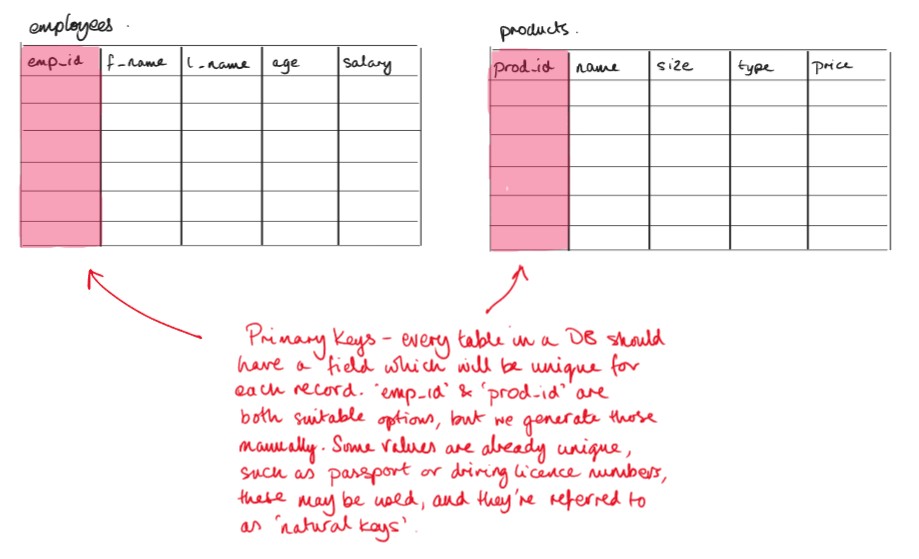 employees.
emp_id f_name l_name age salary
products.
prod_id name size type price
Primary Keys - every table in a DB should
have a field which will be unique for
each record. 'emp_id' & 'prod_id' are
both suitable options, but we generate those
manually. Some values are already unique,
such as passport or driving licence numbers,
these may be used, and they're referred to
as 'natural keys'.